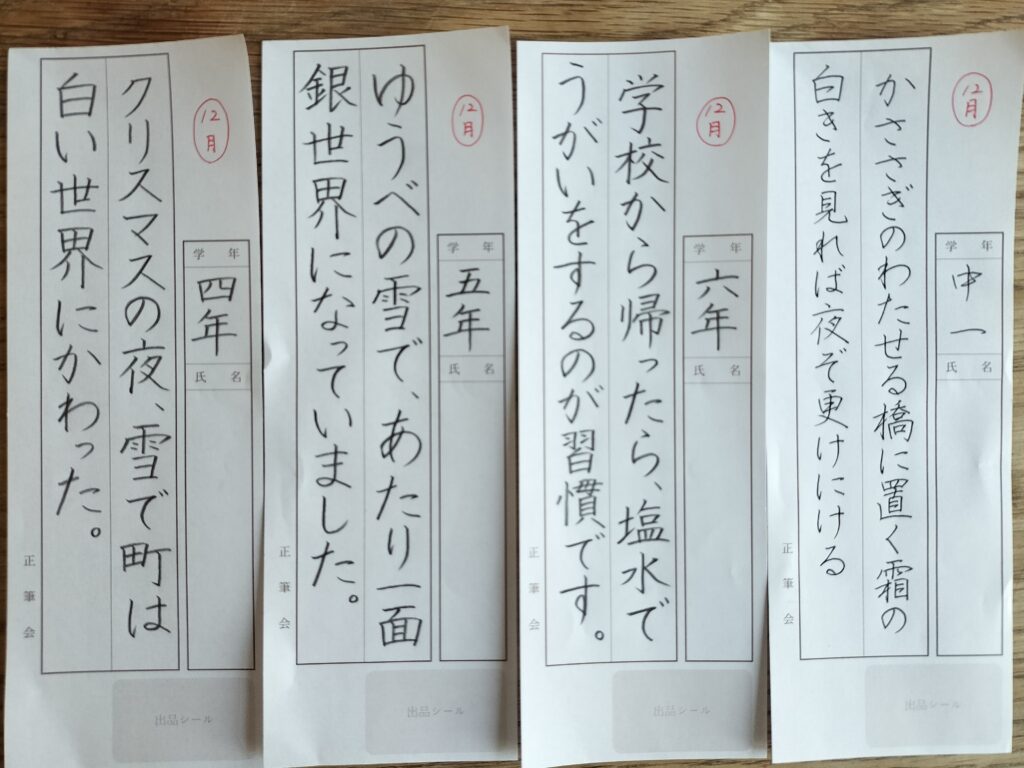 クリスマスの夜、雪で町は
白い世界にかわった。
12月
学年
四年
氏名
正筆会
出品シール
ゆうべの雪で、あたり一面
銀世界になっていました。
12月
学年
五年
氏名
正筆会
出品シール
学校から帰ったら、塩水で
うがいをするのが習慣です。
12月
学年
六年
氏名
正筆会
出品シール
かささぎのわたせる橋に置く霜の
白きを見れば夜ぞ更けにける
12月
学年
中一
氏名
正筆会
出品シール